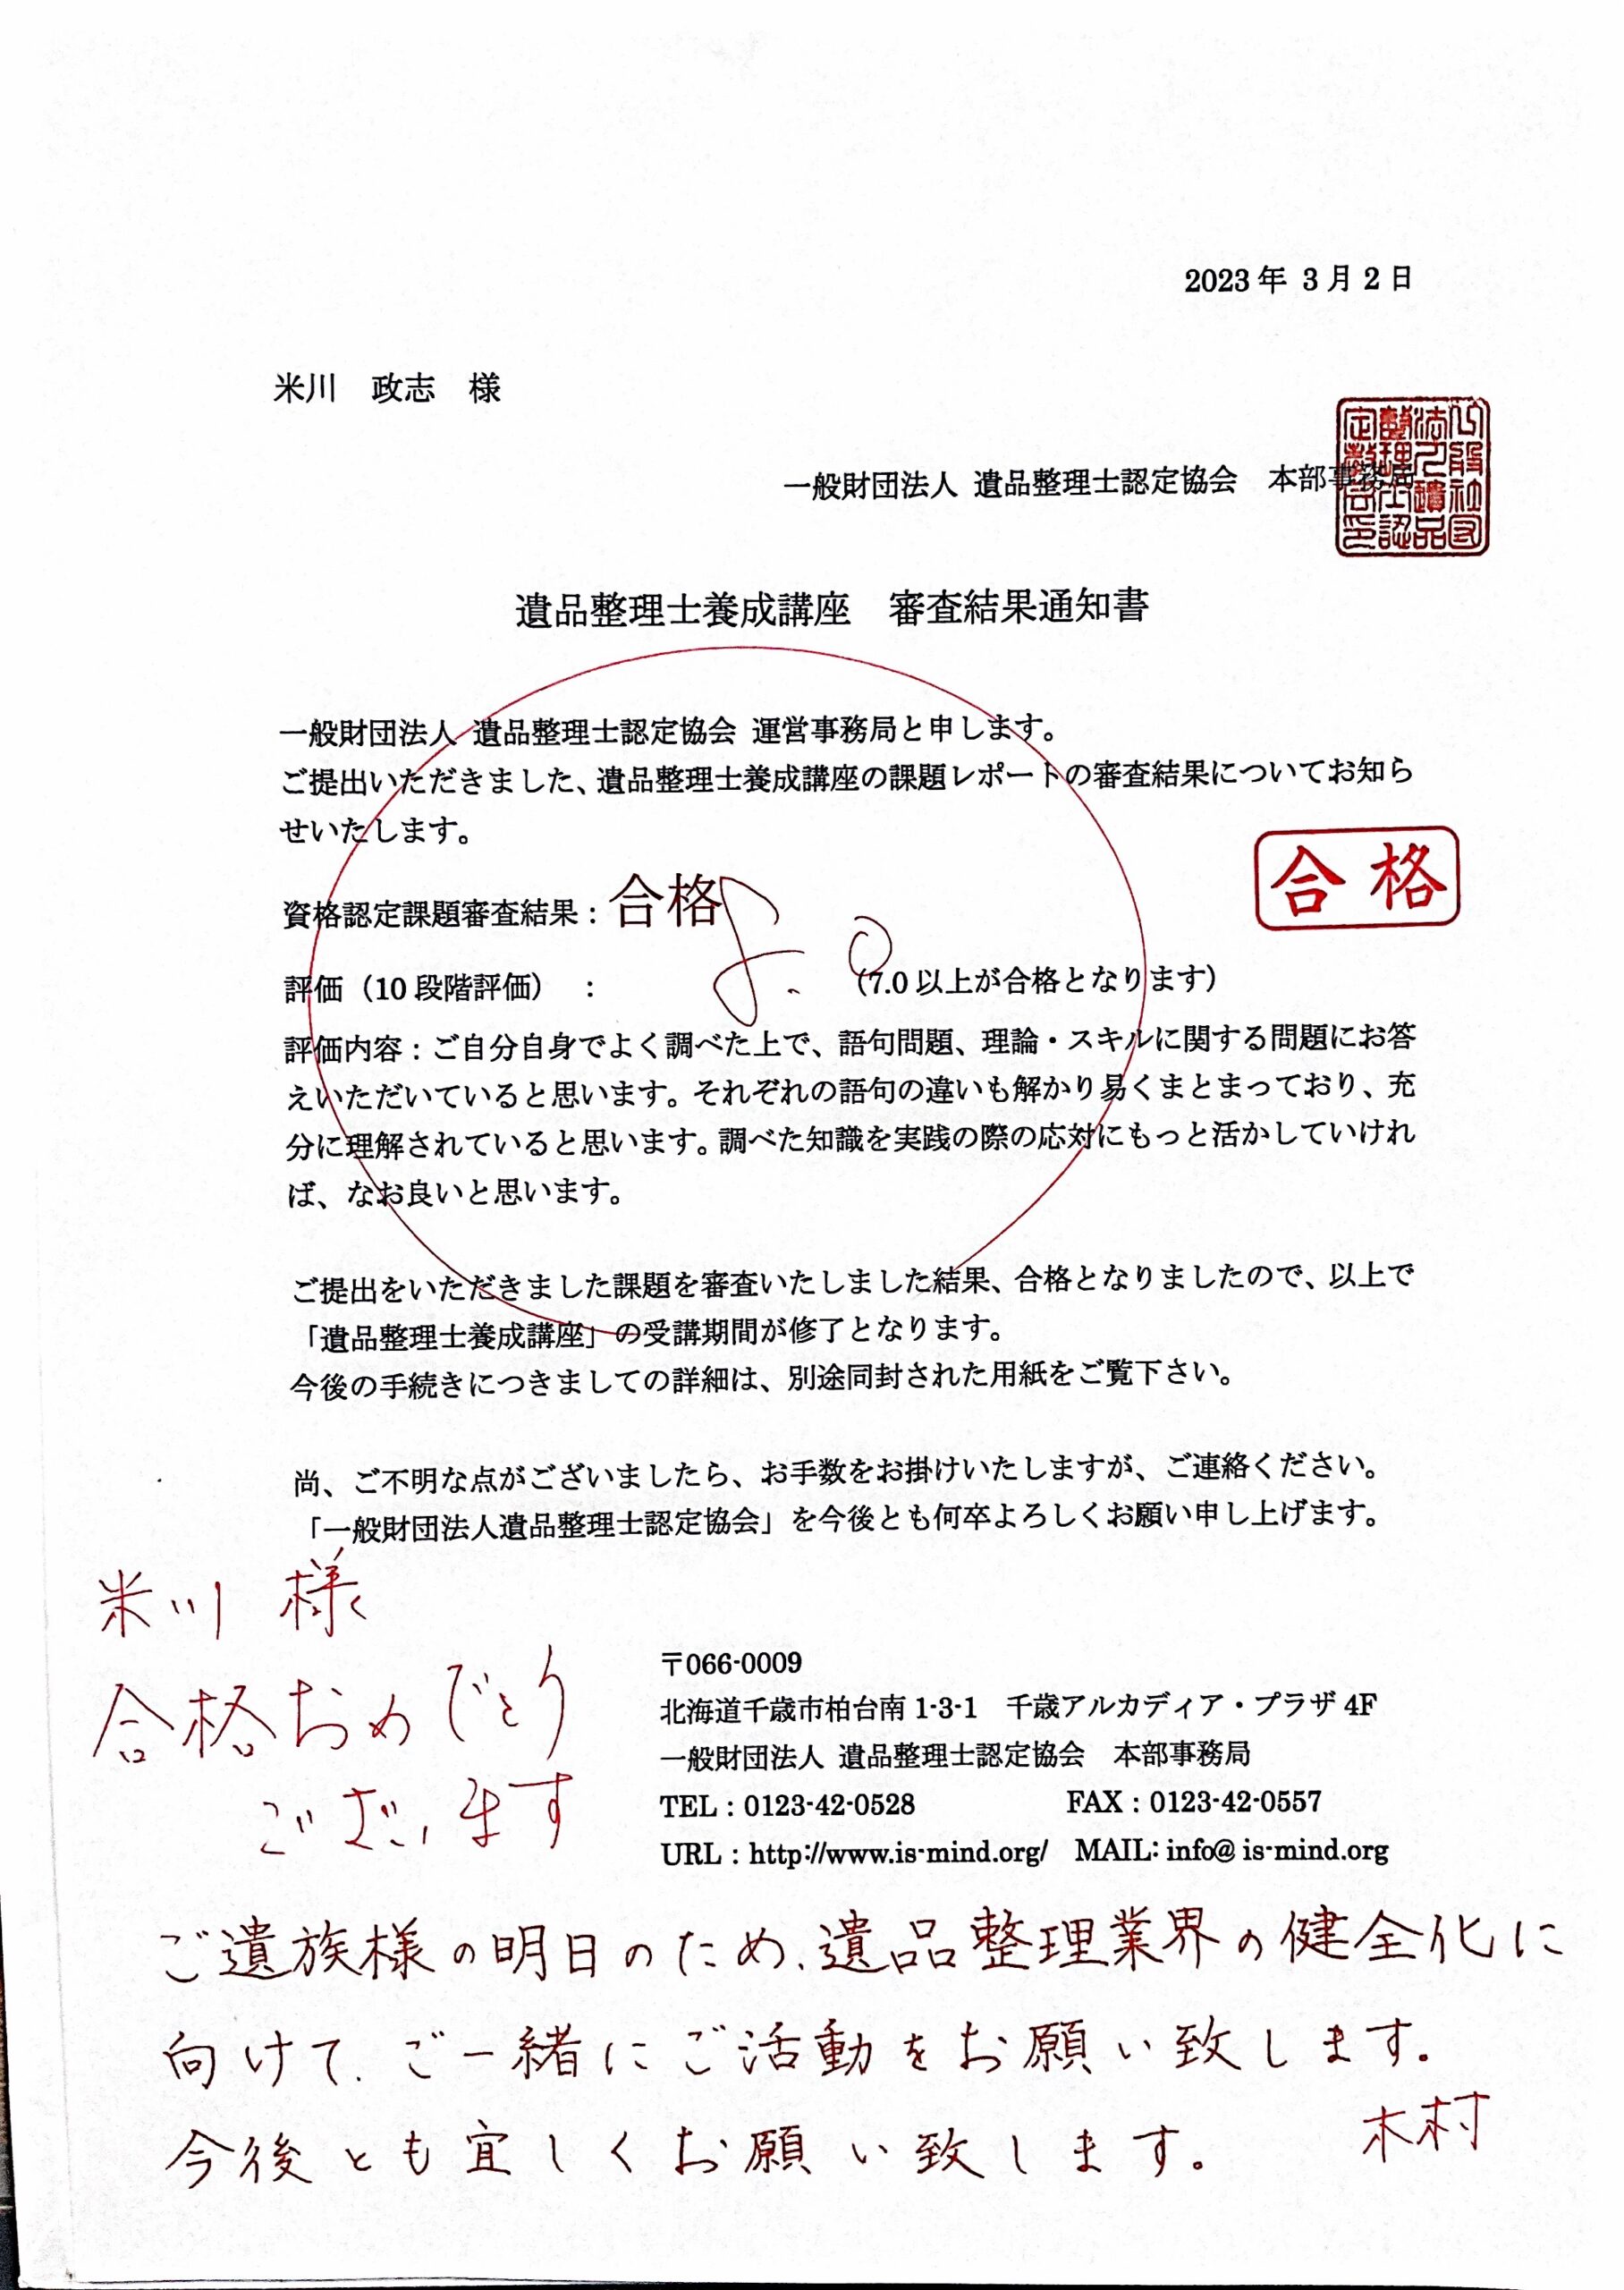 2023年 3月2日
米川　政志　様
一般財団法人 遺品整理士認定協会　本部事務局
遺品整理士養成講座　審査結果通知書
一般財団法人 遺品整理士認定協会 運営事務局と申します。
ご提出いただきました、遺品整理士養成講座の課題レポートの審査結果についてお知ら
せいたします。
合格
資格認定課題審査結果：合格
評価（10段階評価）　：　8.0（7.0以上が合格となります）
評価内容：ご自分自身でよく調べた上で、語句問題、理論・スキルに関する問題にお答
えいただいていると思います。それぞれの語句の違いも解かり易くまとまっており、充
分に理解されていると思います。調べた知識を実践の際の応対にもっと活かしていけれ
ば、なお良いと思います。
ご提出をいただきました課題を審査いたしました結果、合格となりましたので、以上で
「遺品整理士養成講座」の受講期間が修了となります。
今後の手続きにつきましての詳細は、別途同封された用紙をご覧下さい。
尚、ご不明な点がございましたら、お手数をお掛けいたしますが、ご連絡ください。
「一般財団法人遺品整理士認定協会」を今後とも何卒よろしくお願い申し上げます。
米川 様
合格おめでとう
ございます
〒066-0009
北海道千歳市柏台南1-3-1　千歳アルカディア・プラザ4F
一般財団法人 遺品整理士認定協会　本部事務局
TEL：0123-42-0528　FAX：0123-42-0557
URL：http://www.is-mind.org/　MAIL: info@ is-mind.org
ご遺族様の明日のため、遺品整理業界の健全化に
向けて、ご一緒にご活動をお願い致します。
今後とも宜しくお願い致します。
木村